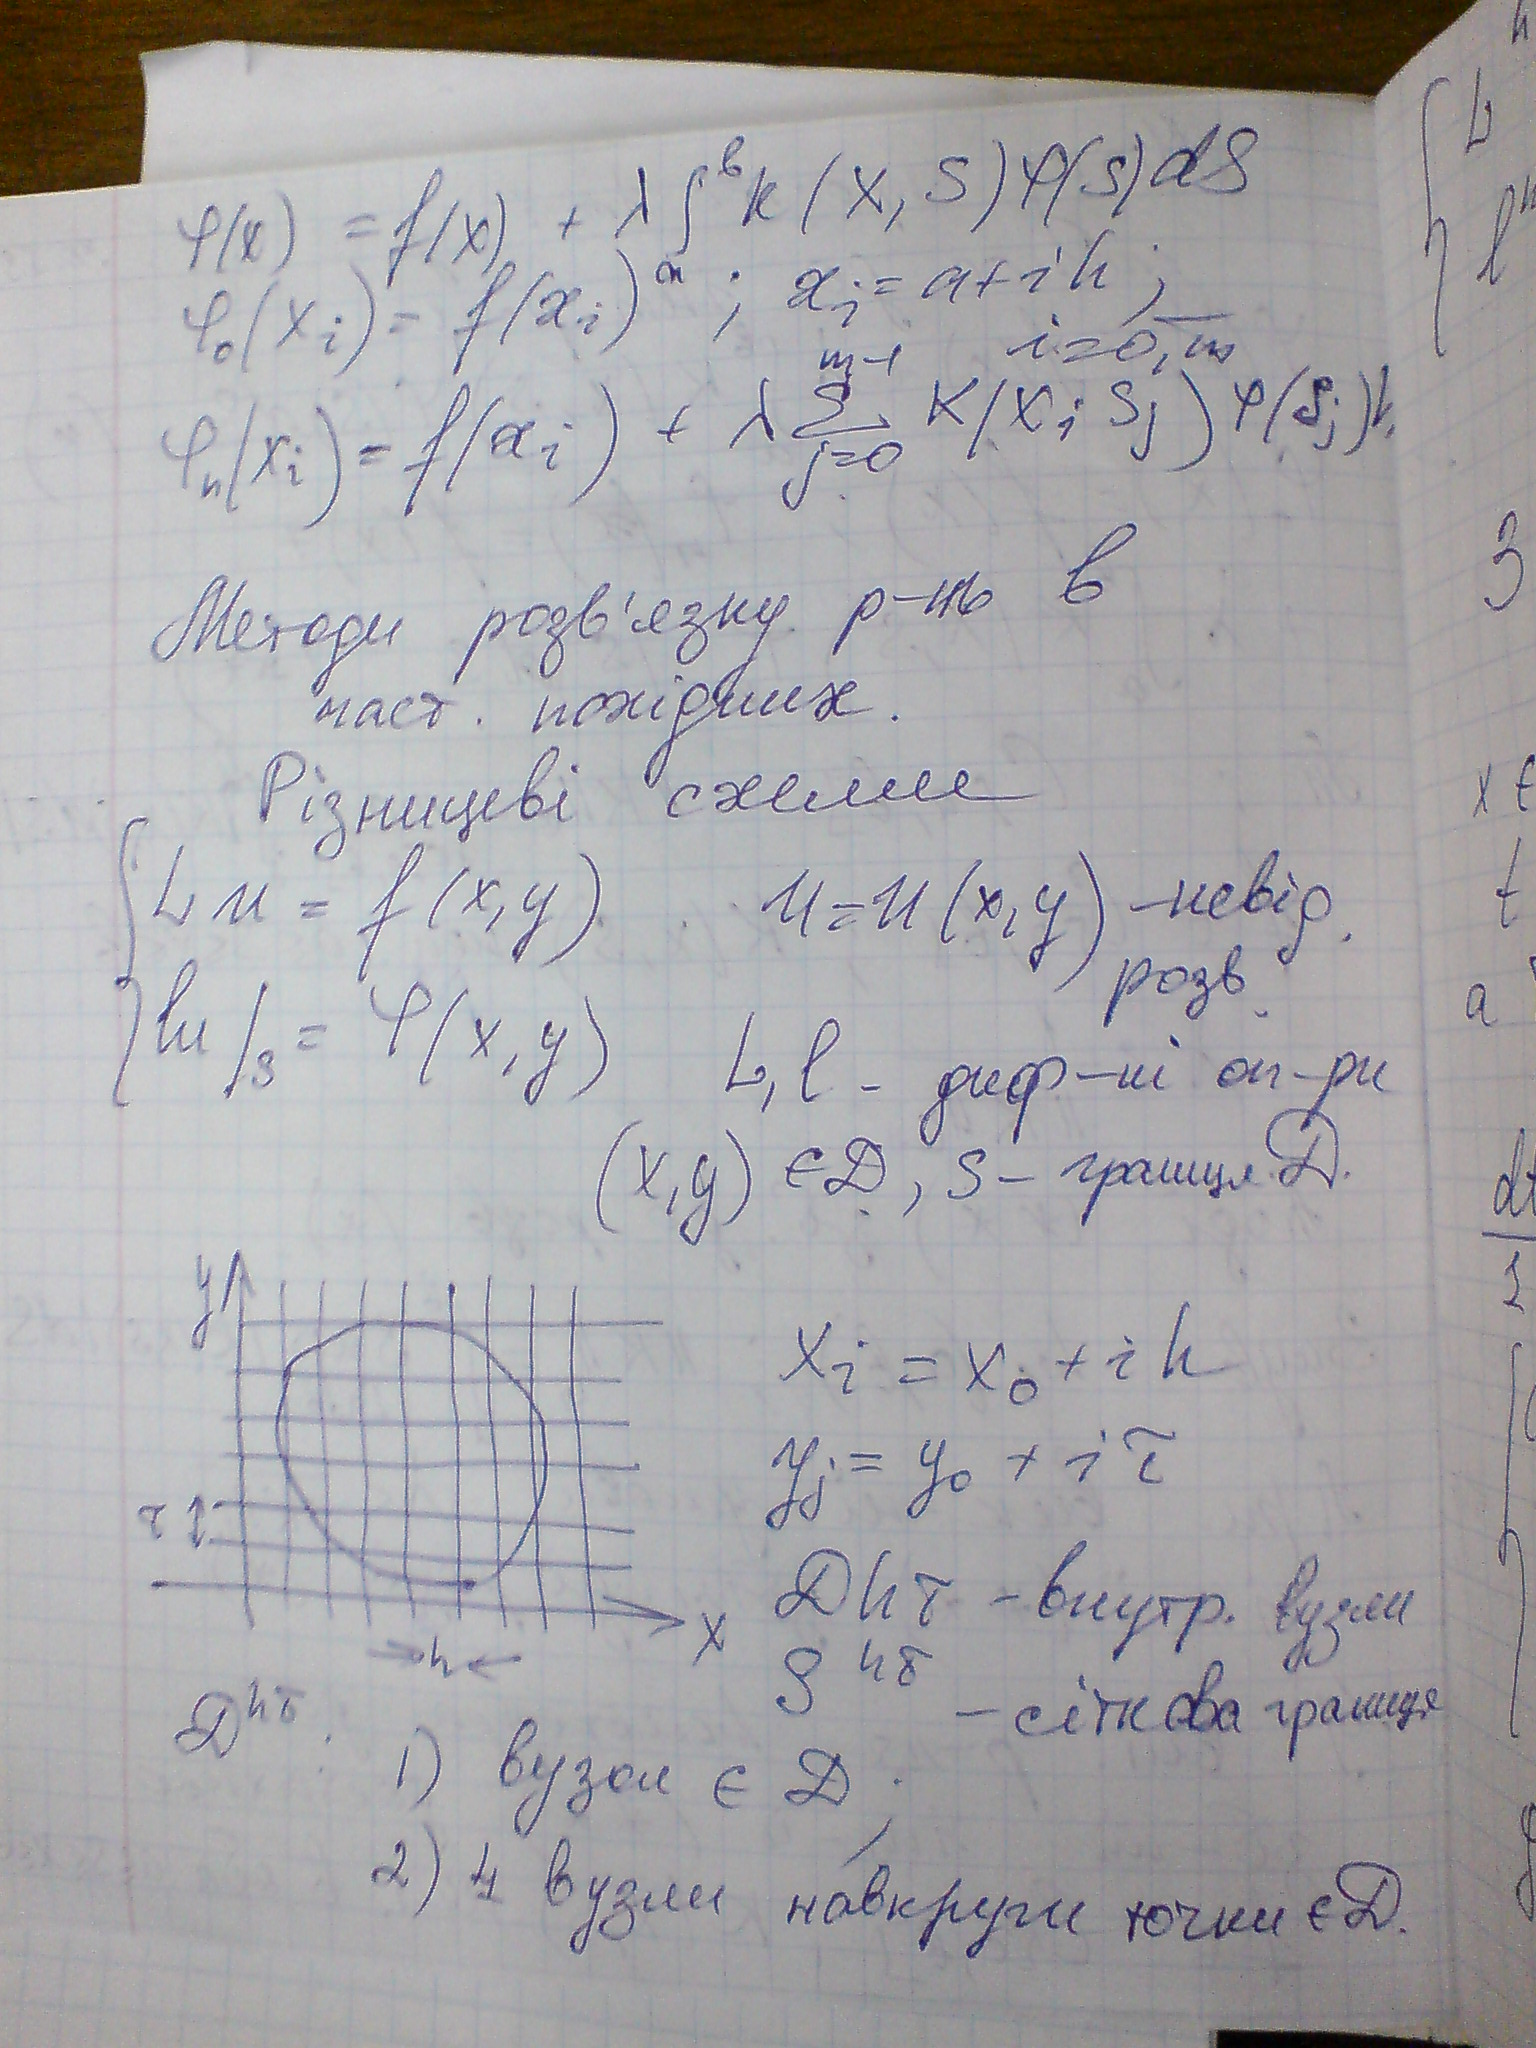 φ(x) = f(x) + λ∫ᵇₐ K(x, s)φ(s)ds
φ₀(xᵢ) = f(xᵢ) ; xᵢ = a+ih ;
i=0,m
φₙ(xᵢ) = f(xᵢ) + λ Σ_{j=0}^{m-1} K(xᵢ sⱼ) φ(sⱼ)h
Методи розв'язку р-нь в
част. похідних.
Різницеві схеми
{ Lu = f(x,y) u=u(x,y) – невід.
розв.
lu/s = φ(x,y)
L, l – диф-ні оп-ри
(x,y) ∈ D, S – границя D.
y
xᵢ = x₀ + ih
yⱼ = y₀ + iτ
τ
Dhτ – внутр. вузли
x
h
S^{hτ} – сіткова границя
D^{hτ}:
1) вузол ∈ D;
2) 4 вузли навкруги точки ∈ D.
L
l
3
x ∈
t
a
dt
1